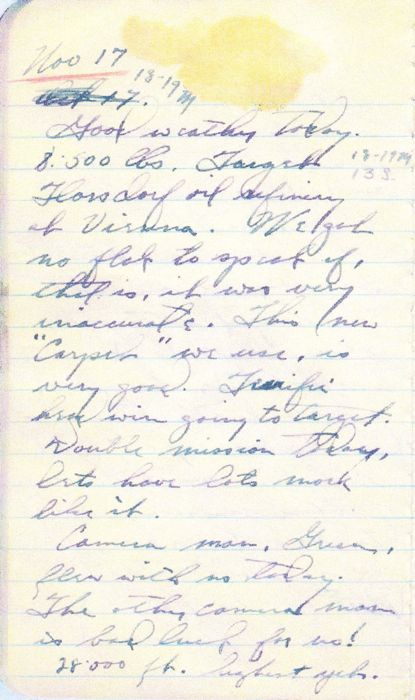 Nov 17 18-19 M
Oct 17.
Good weather today.
8.500 lbs. Target 18-19 M,
Florsdorf oil refinery 13 S.
at Vienna. We got
no flak to speak of,
that is, it was very
inaccurate. This new
"Carpet" we use, is
very good. Terrific
head wind going to target.
Double mission today,
lets have lots more
like it.
Camera man, Green,
flew with us today.
The other camera man
is bad luck for us!
28.000 ft. highest yet.